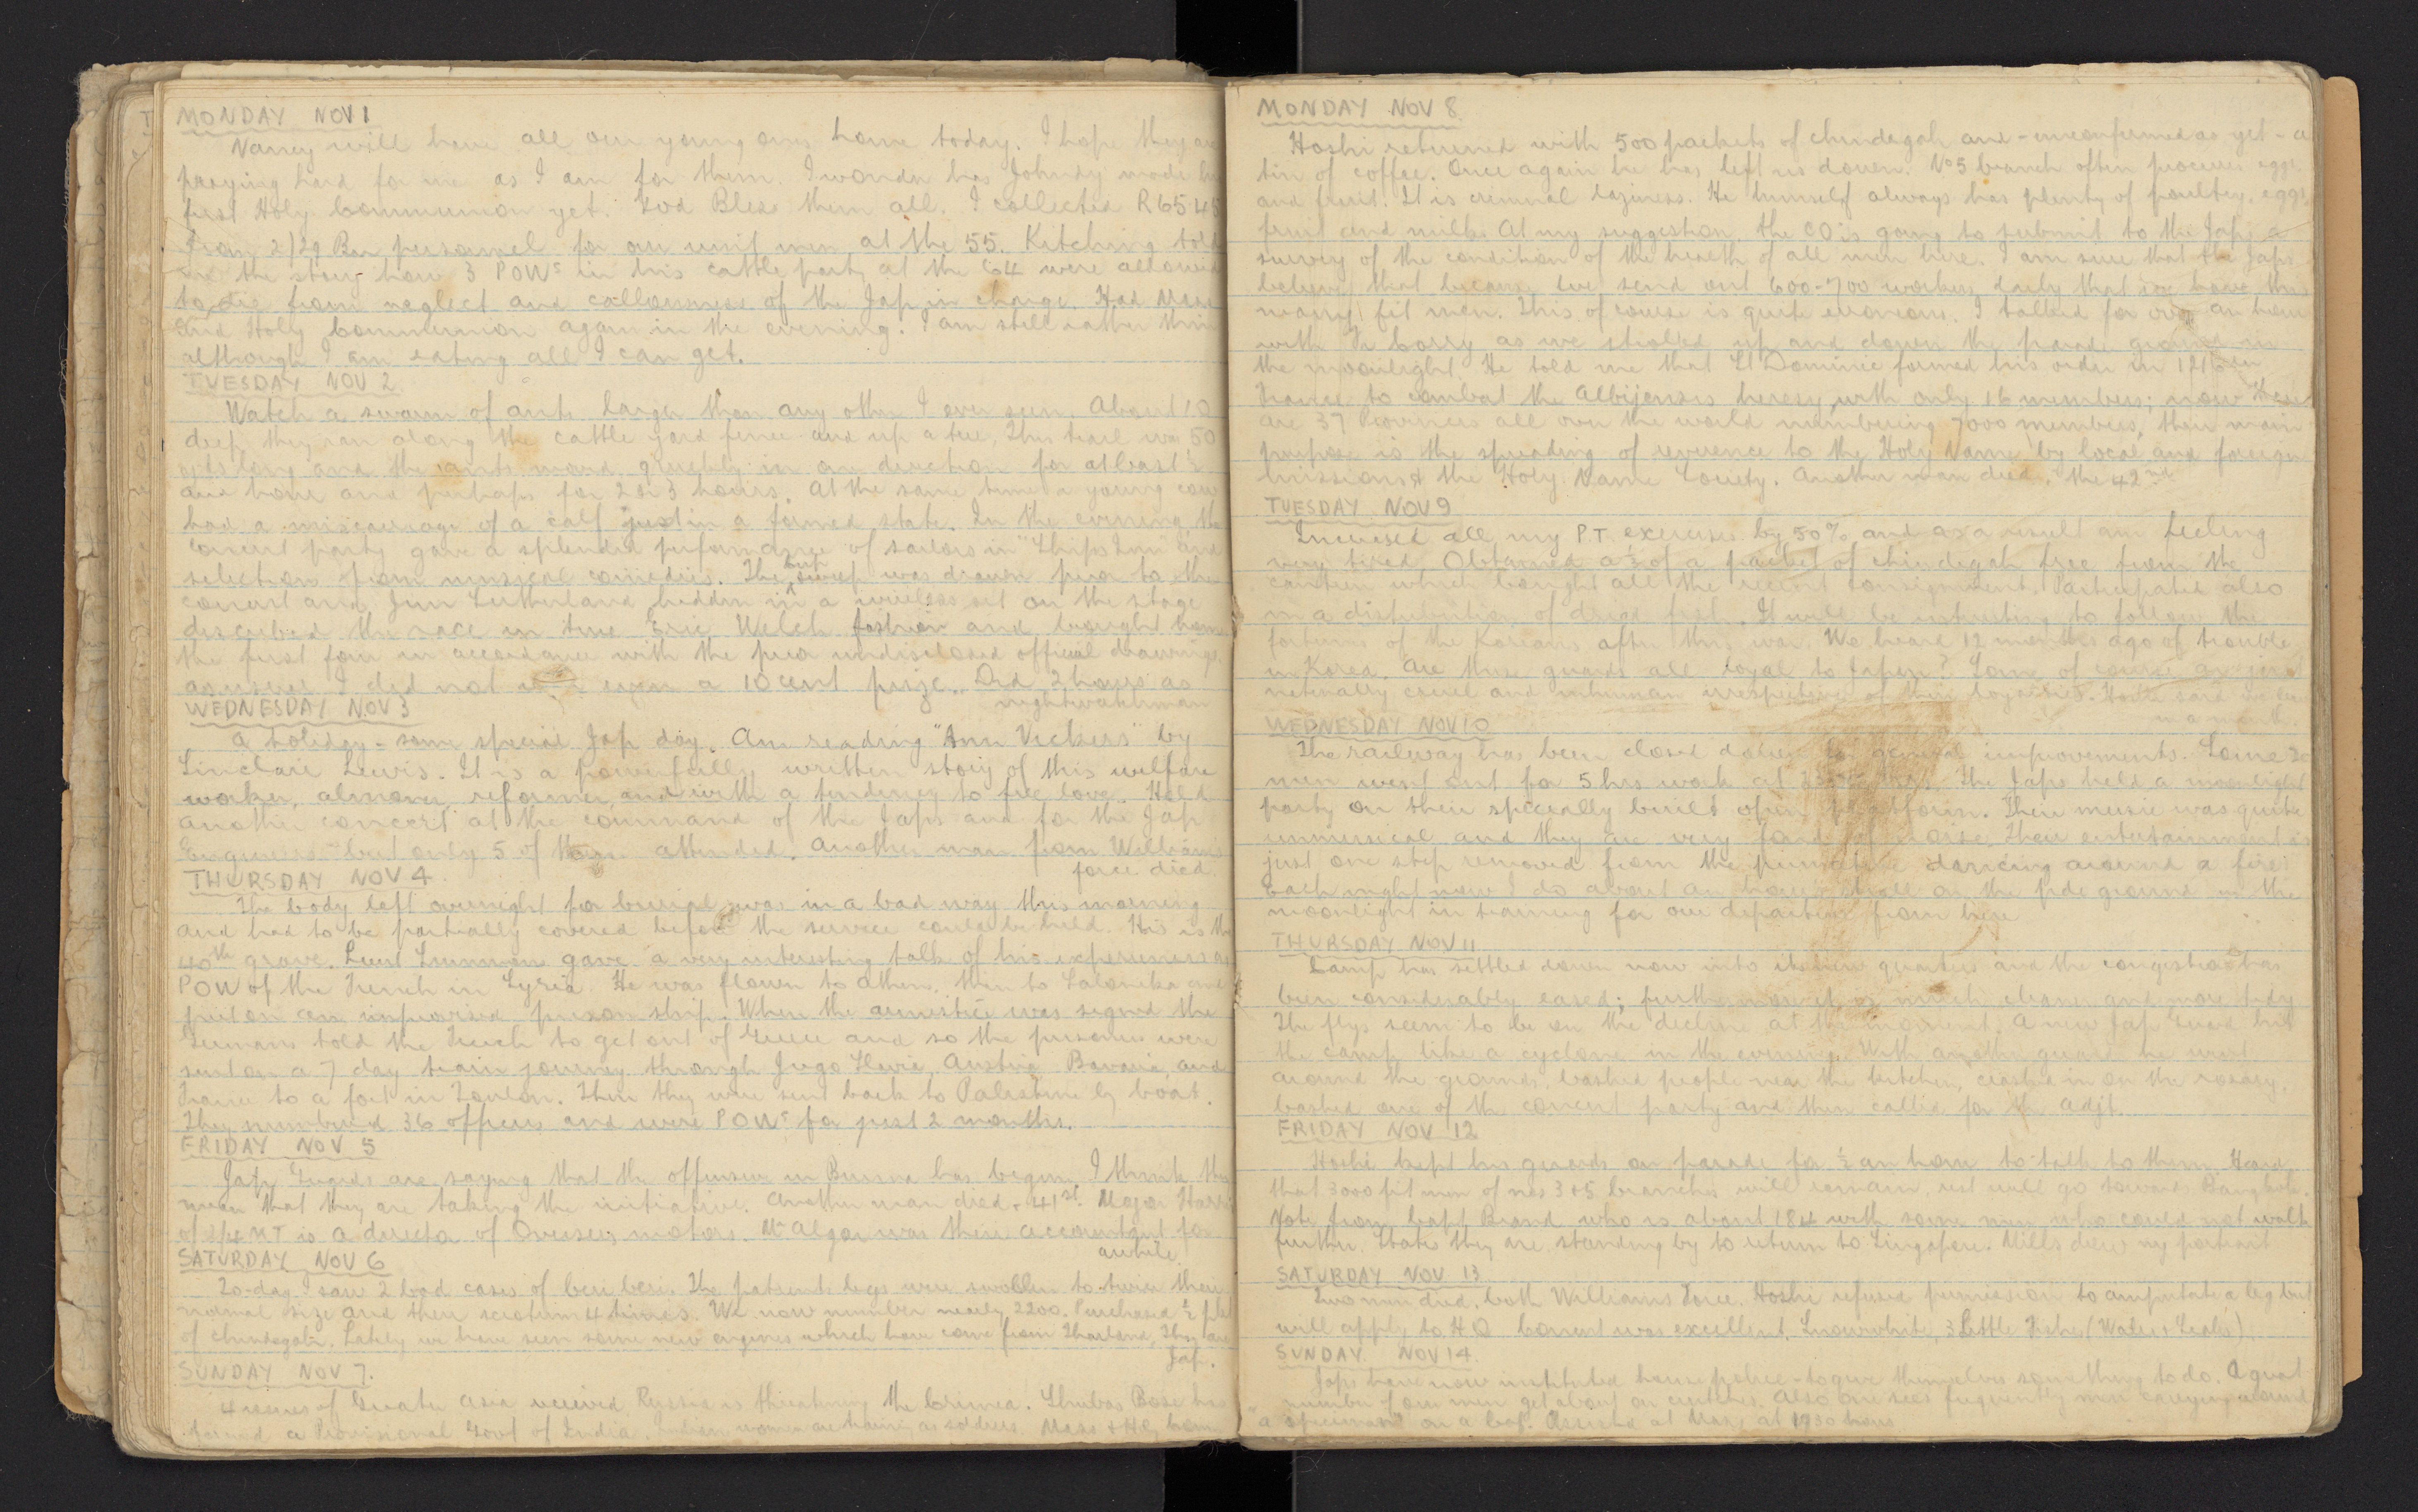 MONDAY NOV 1
Nancy will have all our young ones home today. I hope they are
praying hard for me as I am for them. I wonder has Johnny made his
first Holy Communion yet. God Bless them all. I collected R65 45
from 2/29 Bn personnel for our unit men at the 55. Kitching told
me the story how 3 POWs in his cattle party at the 64 were allowed
to die from neglect and callousness of the Jap in charge. Had Mass
and Holy Communion again in the evening. I am still rather thin
although I am eating all I can get.
TUESDAY NOV 2
Watch a swarm of ants larger than any other I ever seen. About 10
deep they ran along the cattle yard fence and up a tree, Their trail was 50
yds long and the ants moved quickly in one direction for at least ½
an hour and perhaps for 2 or 3 hours. At the same time a young cow
had a miscarriage of a calf just in a formed state. In the evening the
concert party gave a splendid performance of sailors in "Ships Inn" and
selection from musical comedies. The cup sweep was drawn prior to the
concert and Jim Sutherland hidden in a wireless set on the stage
described the race in true Eric Welch fashion and brought home
the first four in accordance with the prior undisclosed official drawings.
as usual I did not win even a 10 cent prize. Did 2 hours as
nightwatchman
WEDNESDAY NOV 3
A holiday - some special Jap day. Am reading "Ann Vickers" by
Sinclair Lewis. It is a powerfully written story of this welfare
worker, almoner, reformer, and with a tendency to free love. Held
another concert at the command of the Japs and for the Jap
Engineers but only 5 of them attended. Another man from Williams
force died.
THURSDAY NOV 4
The body left overnight for burial was in a bad way this morning
and had to be partially covered before the service could be held. His is the
40th grave. Lieut gave a very interesting talk of his experiences as
POW of the French in Syria. He was flown to Athens, then to Salonika and
put on an improvised prison ship. When the armistice was signed the
Germans told the French to get out of Greece and so the prisoners were
sent on a 7 day train journey through Jugo Slavia, Austria Bavaria, and
France to a fort in Toulon. Then they were sent back to Palestine by boat.
They numbered 36 officers and were POWs for just 2 months.
FRIDAY NOV 5
Jap Guards are saying that the offensive in Burma has begun. I think they
mean that they are taking the initiative. Another man died - 41st. Major Harris
of MT is a director of Overseas motors. Mc Algar was their accountant for
awhile.
SATURDAY NOV 6
To-day I saw 2 bad cases of beri beri. The patients legs were swollen to twice their
normal size and their scrotum 4 times. We now number nearly 2200. Purchased ½ pkt
of chindegah. Lately we have seen some new engines which have come from Thailand, They are
Jap.
SUNDAY NOV 7.
4 issues of Greater Asia received Russia is threatening the Crimea. Shubas Bose has
formed a Provisional Govt of India. Indian women are training as soldiers. Mass & Holy Comm
MONDAY NOV 8.
Hoshi returned with 500 packets of chindegah and - unconfirmed as yet - a
tin of coffee. Once again he has left us down. No 5 branch often procures eggs
and fruit. It is criminal laziness. He himself always has plenty of poultry, eggs,
fruit and milk. At my suggestion the CO is going to submit to the Japs a
survey of the condition of the health of all men here. I am sure that the Japs
believe that because we send out 600-700 workers daily that we have this
many fit men. This of course is quite erroneous. I talked for over an hour
with Fr Corry as we strolled up and down the parade ground in
the moonlight. He told me that St Dominic formed his order in 1216 in
France to combat the Albijensis heresy with only 16 members; now there
are 37 Provinces all over the world numbering 7000 members, their main
purpose is the spreading of reverence to the Holy Name by local and foreign
missions & the Holy Name Society. Another man died, the 42nd
TUESDAY NOV 9
Increased all my P.T. exercises by 50% and as a result am feeling
very tired. Obtained a ½ of a packet of chindegah free from the
canteen which bought all the recent consignment. Participated also
in a distribution of dried fish. It will be interesting to follow the
fortunes of the Koreans after this war. We heard 12 months ago of trouble
in Korea. Are these guards all loyal to Japan? Some of course are just
naturally cruel and inhuman irrespective of their loyalties. Hoshi said
in a month.
WEDNESDAY NOV 10
The railway has been closed down for general improvements. Some 20
men went out for 5 hrs work at The Japs held a moonlight
party on their specially built open platform. Their music was quite
unmusical and they are very fond of noise. Their entertainment is
just one step removed from the primitive dancing around a fire.
Each night now I do about an hours stroll on the pde ground in the
moonlight in training for our departure from here
THURSDAY NOV 11
Camp has settled down now into its new quarters and the congestion has
been considerably eased; furthermore it is much cleaner and more tidy
The flys seem to be on the decline at the moment. A new Jap Guard hit
the camp like a cyclone in the evening. With another guard he went
around the grounds, bashed people near the kitchen, crashed in on the rosary,
bashed one of the concert party and then called for the adjt.
FRIDAY NOV 12
Hoshi kept his guards on parade for ½ an hour to talk to them. Heard
that 3000 fit men of nos 3 & 5 branches will remain, rest will go towards Bangkok.
Note from Capt Brand who is about 184 with some men who could not walk
further. States they are standing by to return to Singapore. Mills drew my portrait
SATURDAY NOV 13
Two men died, both Williams Force. Hoshi refused permission to amputate a leg but
will apply to HQ Concert was excellent. Snowwhite, 3 Little Fishes,
SUNDAY NOV 14.
Japs have now instituted house police - to give themselves something to do. A great
number of our men get about on crutches. Also one sees frequently men carrying around
"a specimen" on a leaf. Assisted at Mass at 1930 hours